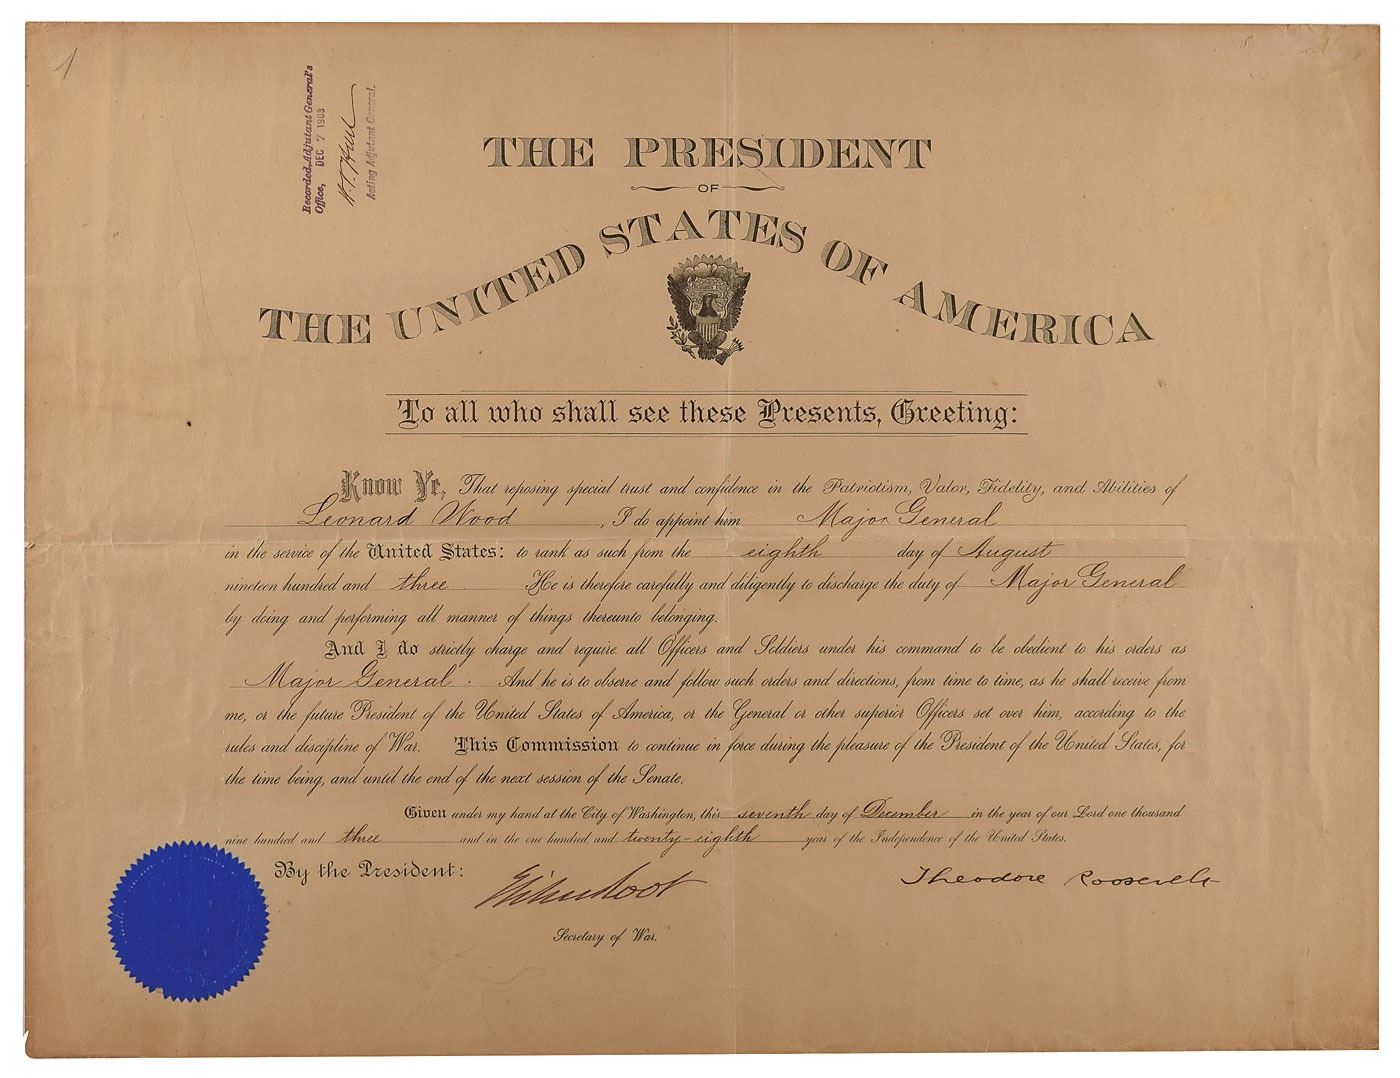 1
Recorded, Adjutant General's
Office, DEC 7 1903
Acting Adjutant General.
THE PRESIDENT
OF
THE UNITED STATES OF AMERICA
To all who shall see these Presents, Greeting:
Know Ye, That reposing special trust and confidence in the Patriotism, Valor, Fidelity, and Abilities of
Leonard Wood, I do appoint him Major General
in the service of the United States: to rank as such from the eighth day of August
nineteen hundred and three. He is therefore carefully and diligently to discharge the duty of Major General
by doing and performing all manner of things thereunto belonging.
And I do strictly charge and require all Officers and Soldiers under his command to be obedient to his orders as
Major General. And he is to observe and follow such orders and directions, from time to time, as he shall receive from
me, or the future President of the United States of America, or the General or other superior Officers set over him, according to the
rules and discipline of War. This Commission to continue in force during the pleasure of the President of the United States, for
the time being, and until the end of the next session of the Senate.
Given under my hand at the City of Washington, this seventh day of December in the year of our Lord one thousand
nine hundred and three and in the one hundred and twenty-eighth year of the Independence of the United States.
By the President:
Theodore Roosevelt
Elihu Root
Secretary of War.